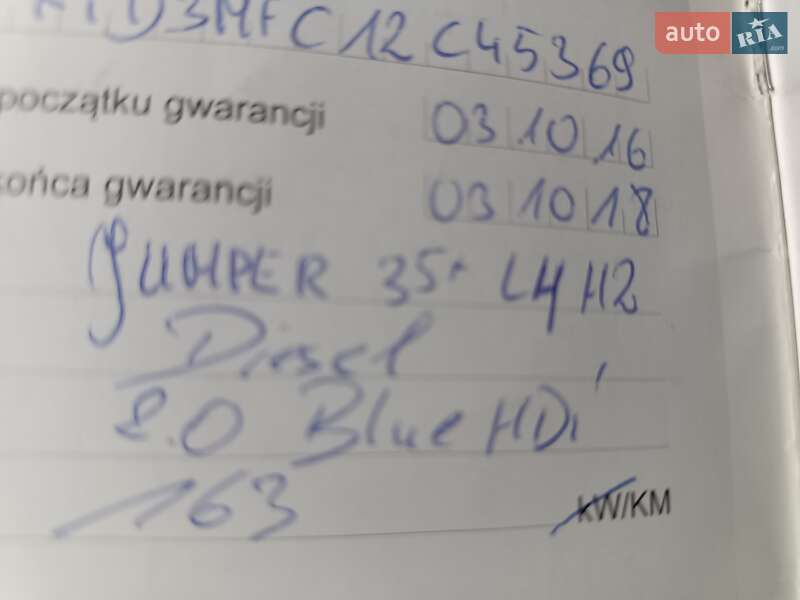 auto RIA .com
D3MFC12C45369
początku gwarancji 03 10 16
końca gwarancji 03 10 18
JUMPER 35+ L4H2
Diesel
2.0 BlueHDi
163 kW/KM